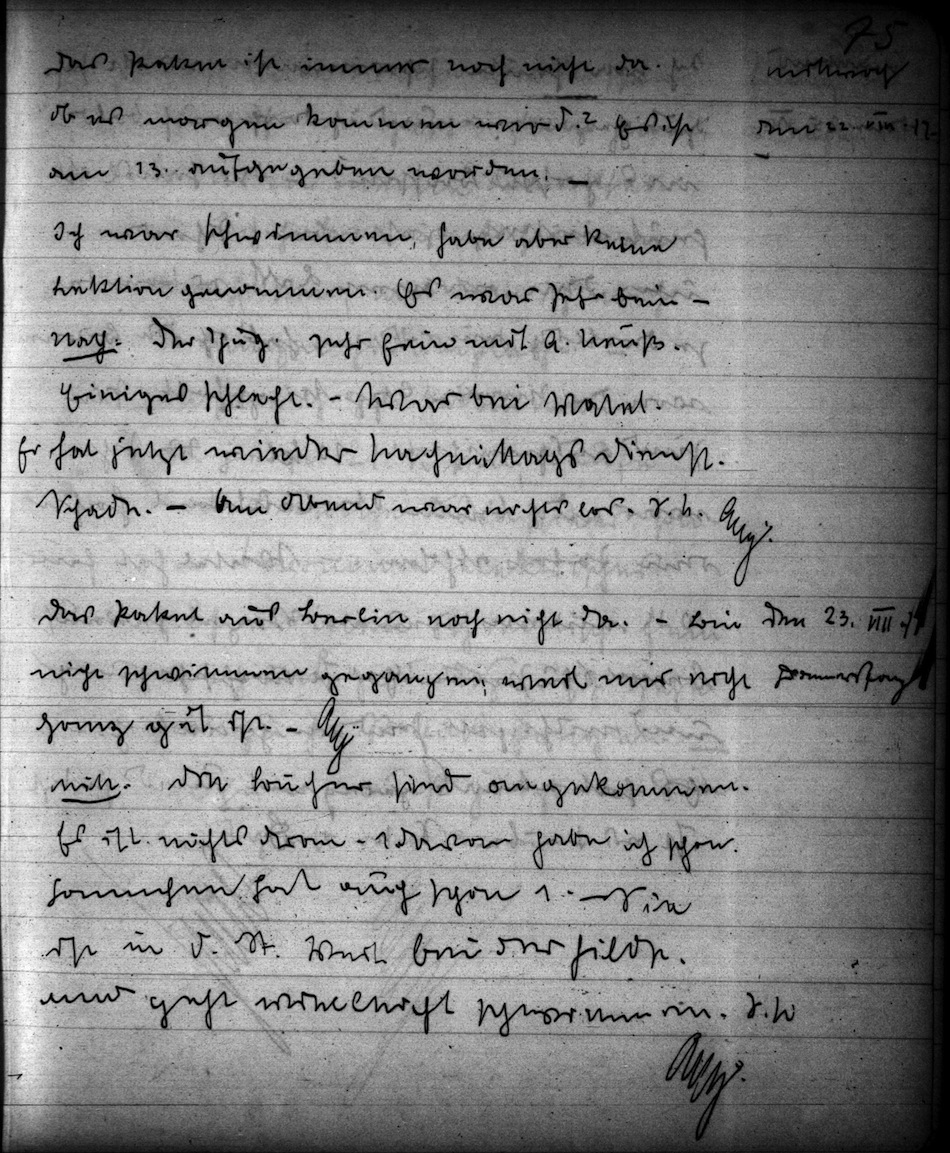 75
Das Paket ist immer noch nicht da. Mittwoch
Ob es morgen kommen wird.? Es ist den 22. VIII. 17
am 13. aufgegeben worden. –
Ich war schwimmen, habe aber keine
Lektion genommen. Es war sehr
nach. Der Zug. sehr fein mit A. Neuß.
Einiges schlecht. – War bei
Er hat jetzt wieder Nachmittags dienst.
Schade. – Am Abend war nichts los. S. h. Any.
Das Paket aus Berlin noch nicht da. – Bin den 23. VIII.
nicht schwimmen gegangen, weil mir nicht Donnerstag
ganz gut ist. – Any
Mitt. Die Bücher sind angekommen.
Es ist nichts dran. 1 davon habe ich schon.
Hannchen hat auch schon 1. – Sie
ist in d. St. bei der Hilde.
und geht vielleicht schwimmen. S. h
Any.